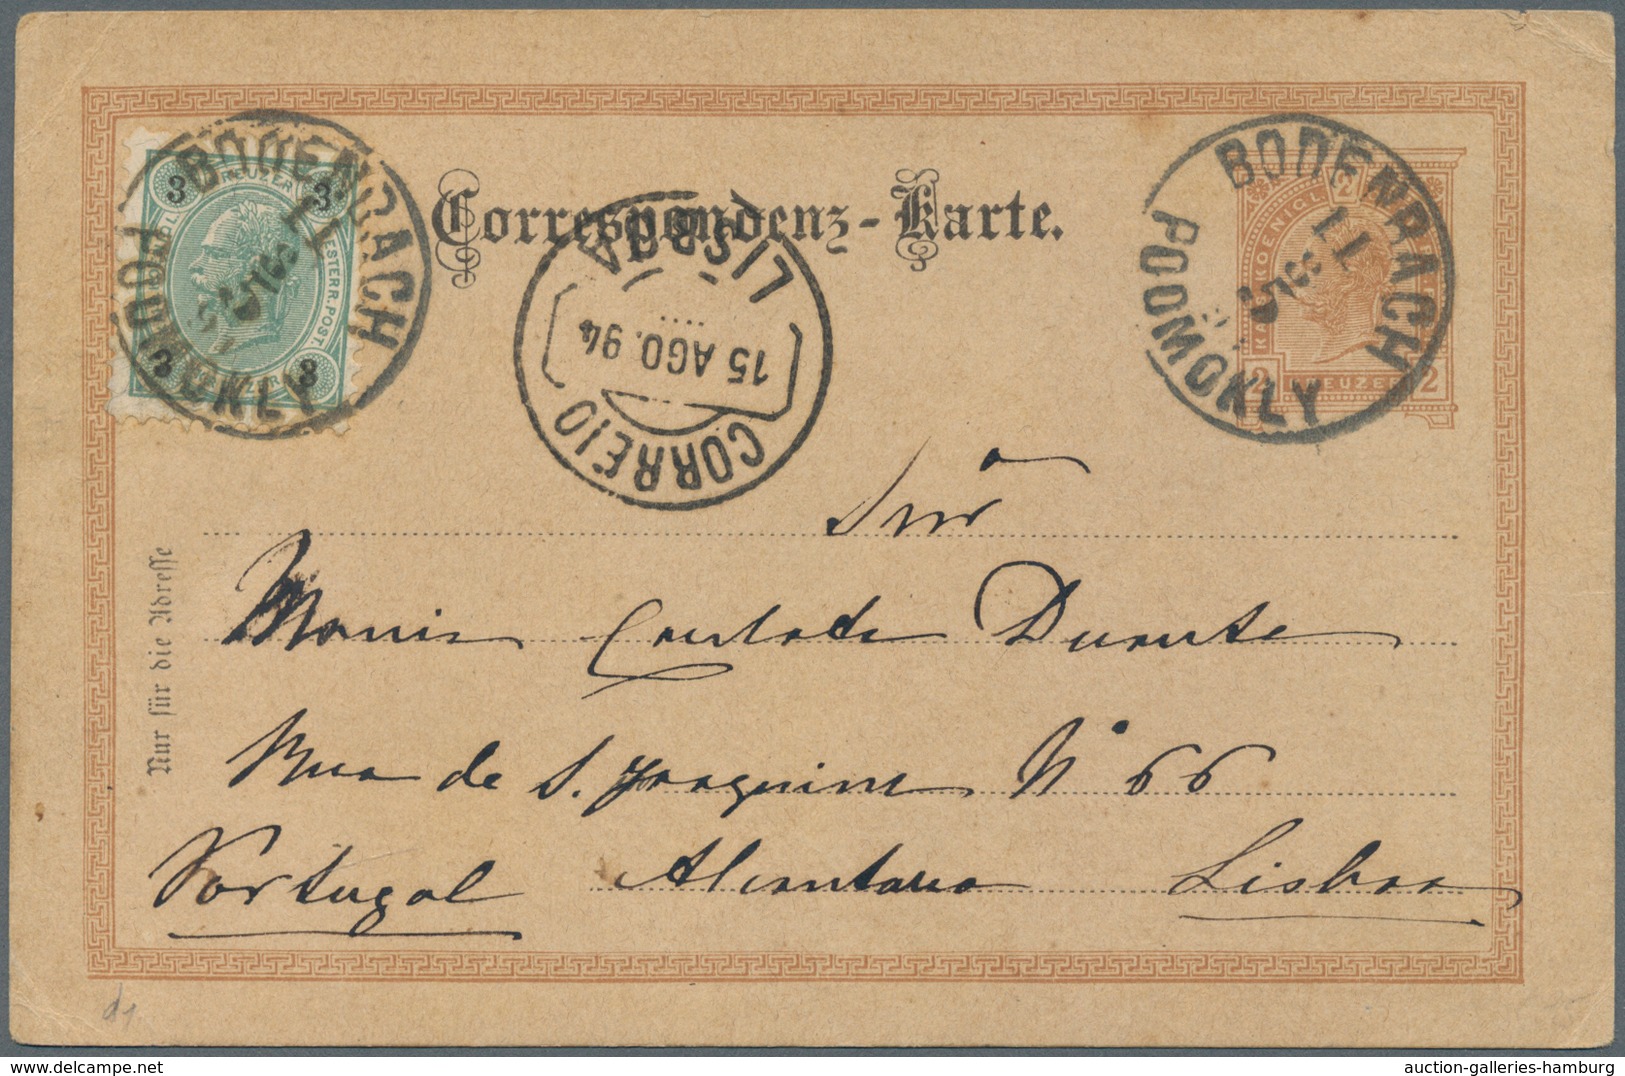 Correspondenz-Karte.
3 KREUZER 3
3 KREUZER 3
ESTERR. POST
BODENBACH
PODMOKLY
11
LISBOA
15 AGO. 94
CORREIO
BODENBACH
PODMOKLY
11
KAIS. KOENIGL.
2 KREUZER 2
Snr
Maria Duarte
Rua de S. Joaquim N 66
Portugal Alcantara Lisboa
Nur für die Adresse
d1
auction-galleries-hamburg